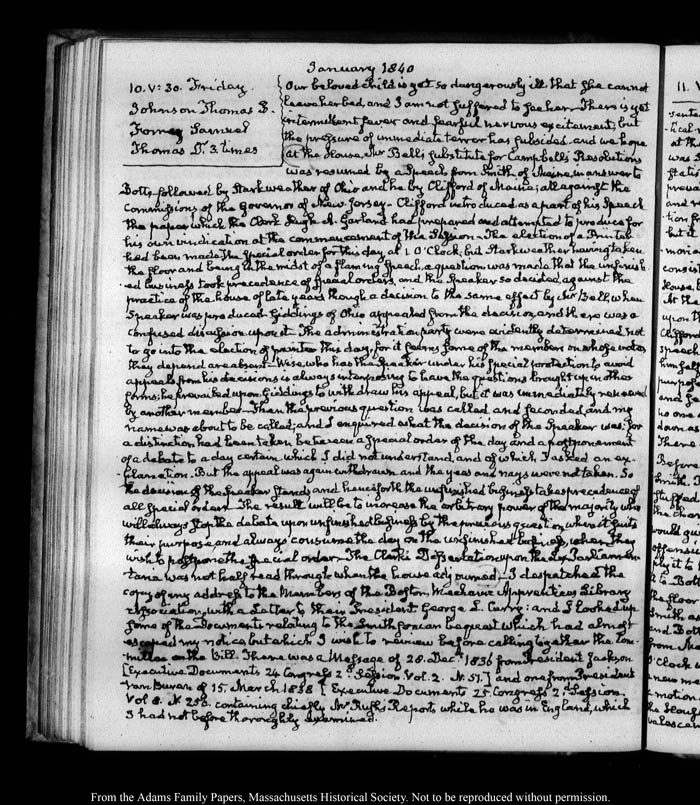 January 1840
10. V: 30. Friday.
Johnson Thomas B.
Forney Samuel
Thomas D. 3. times
Our beloved child is yet so dangerously ill that she cannot
leave her bed, and I am not suffered to see her. There is yet
intermittent fever and fearful nervous excitement, but
the pressure of immediate terror has subsided and we hope
At the House, Mr Bell's substitute for Campbell's Resolutions
was resumed by a Speech from Smith of Maine, in answer to
Botts, followed by Starkweather of Ohio and he by Clifford of Maine; all against the
Commissions of the Governor of New-Jersey. Clifford introduced as a part of his Speech
the paper which the Clerk Hugh A. Garland had prepared and attempted to produce for
his own vindication at the commencement of the Session. The election of a Printer
had been made the special order for this day at 1. O'Clock; but Starkweather having taken
the floor and being in the midst of a flaming Speech, a question was made that the unfinish-
-ed business took precedence of special orders, and the Speaker so decided, against the
practice of the house of late years though a decision to the same effect by Mr Bell when
Speaker was produced. Giddings of Ohio appealed from the decision, and there was a
confused discussion upon it. The administration party were evidently determined not
to go into the election of printer this day, for it seems some of the members on whose votes
they depend are absent. Wise, who has the Speaker under his special protection to avoid
appeals from his decisions is always interposing to have the questions brought up in other
forms; he prevailed upon Giddings to withdraw his appeal, but it was immediately renewed
by another member. Then the previous question was called and seconded, and my
name was about to be called; and I enquired what the decision of the Speaker was: for
a distinction had been taken between a special order of the day and a postponement
of a debate to a day certain, which I did not understand, and of which I asked an ex-
-planation. But the appeal was again withdrawn and the yeas and nays were not taken. So
the decision of the Speaker stands and henceforth the unfinished business takes precedence of
all special orders. The result will be to increase the arbitrary power of the majority who
will always stop the debate upon unfinished business by the previous question, when it suits
their purpose, and always consume the day on the unfinished business, when they
wish to postpone the special order. The Clerk's Dissertation upon the Lex Parliamen-
taria was not half read through when the house adjourned. I despatched the
copy of my address to the Members of the Boston Mechanic Apprentices Library
Association, with a Letter to their President George L. : and I looked up
some of the Documents relating to the Smithsonian bequest which had almost
escaped my notice but which I wish to review before calling together the Com-
mittee on the Bill. There was a Message of 28. Decr 1836 from President Jackson
[Executive Documents 24 Congress 2d Session Vol. 2. N. 51.] and one from President
Van Buren of 15. March 1838 [Executive Documents 25 Congress 2d Session.
Vol 8. N. containing chiefly Mr Rush's Reports while he was in England, which
I had not before thoroughly examined.
11. V
From the Adams Family Papers, Massachusetts Historical Society. Not to be reproduced without permission.